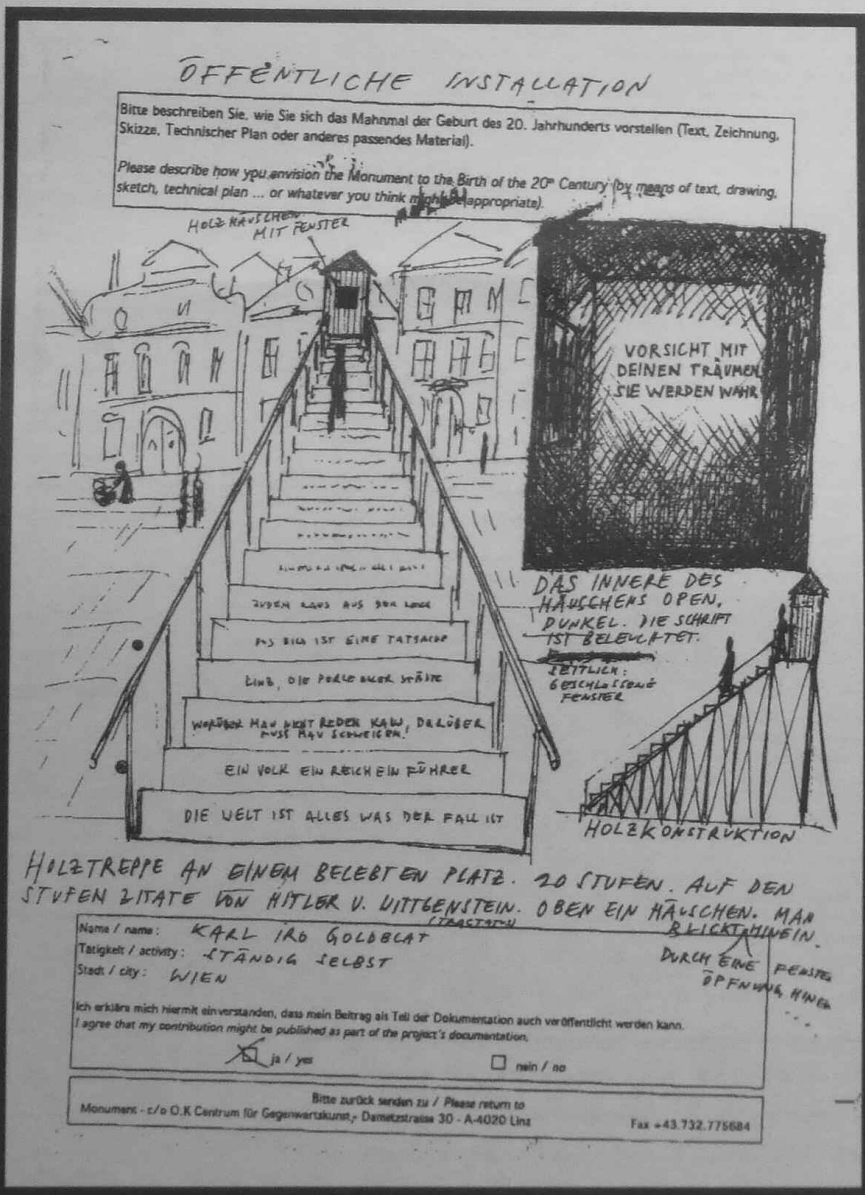 ÖFFENTLICHE INSTALLATION
Bitte beschreiben Sie, wie Sie sich das Mahnmal der Geburt des 20. Jahrhunderts vorstellen (Text, Zeichnung,
Skizze, Technischer Plan oder anderes passendes Material).
Please describe how you envision the Monument to the Birth of the 20th Century (by means of text, drawing,
sketch, technical plan ... or whatever you think might be appropriate).
HOLZHÄUSCHEN
MIT FENSTER
VORSICHT MIT
DEINEN TRÄUMEN
SIE WERDEN WAHR
DAS INNERE DES
HÄUSCHENS OPEN,
DUNKEL. DIE SCHRIFT
IST BELEUCHTET.
SEITLICH:
GESCHLOSSENE
FENSTER
JUDEN RAUS AUS DER
DAS BILD IST EINE TATSACHE
LINZ, DIE PERLE ALLER STÄDTE
WORÜBER MAN NICHT REDEN KANN, DARÜBER
MUSS MAN SCHWEIGEN!
EIN VOLK EIN REICH EIN FÜHRER
DIE WELT IST ALLES WAS DER FALL IST
HOLZKONSTRUKTION
HOLZTREPPE AN EINEM BELEBTEN PLATZ. 20 STUFEN. AUF DEN
STUFEN ZITATE VON HITLER U. WITTGENSTEIN. OBEN EIN HÄUSCHEN. MAN
(TRACTATUS)
BLICKT HINEIN.
DURCH EINE FENSTER
ÖFFNUNG HINEIN
....
Name / name: KARL IRO GOLDBLAT
Tätigkeit / activity: STÄNDIG SELBST
Stadt / city: WIEN
Ich erkläre mich hiermit einverstanden, dass mein Beitrag als Teil der Dokumentation auch veröffentlicht werden kann.
I agree that my contribution might be published as part of the project's documentation.
ja / yes nein / no
Bitte zurück senden zu / Please return to
Monument - c/o O.K Centrum für Gegenwartskunst,- Dametzstrasse 30 - A-4020 Linz Fax +43.732.775684